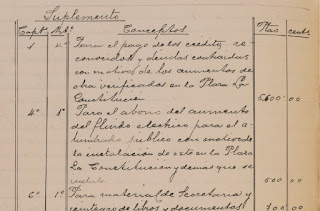 Suplemento
Capº Artº Conceptos Ptas cents
1 4º Para el pago de los creditos re-
conocidos y deudas contraidas
con motivo de los aumentos de
obra verificados en la Plaza La
Constitucion 5,600 00
4º 1º Para el abono del aumento
del fluido electrico para el a-
lumbrado publico con motivo de
la instalacion de este en la Plaza
La Constitucion y demas que se
500 00
6º 1º Para material de Secretaria y
reintegro de libros y documentos 700 00